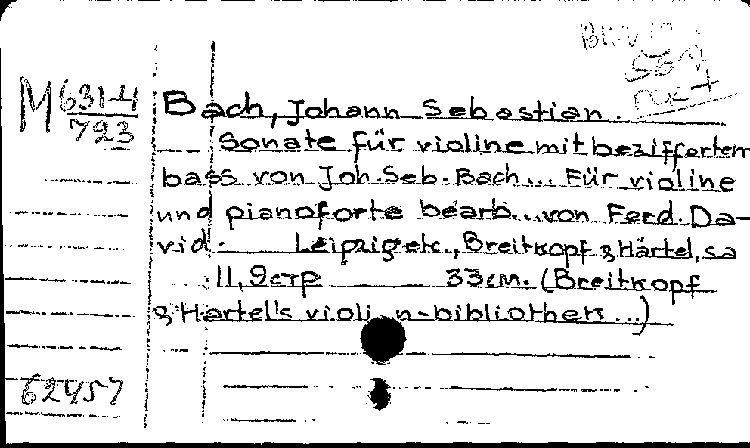 M 631-4
723
Bach, Johann Sebastian.
Sonate für violine mit beziffertem
bass von Joh. Seb. Bach... Für violine
und pianoforte bearb... von Ferd. Da-
vid. Leipzig etc., Breitkopf & Härtel, s a
11, 9 стр 33 см. (Breitkopf
& Hartel's violin-bibliothek...)
62457